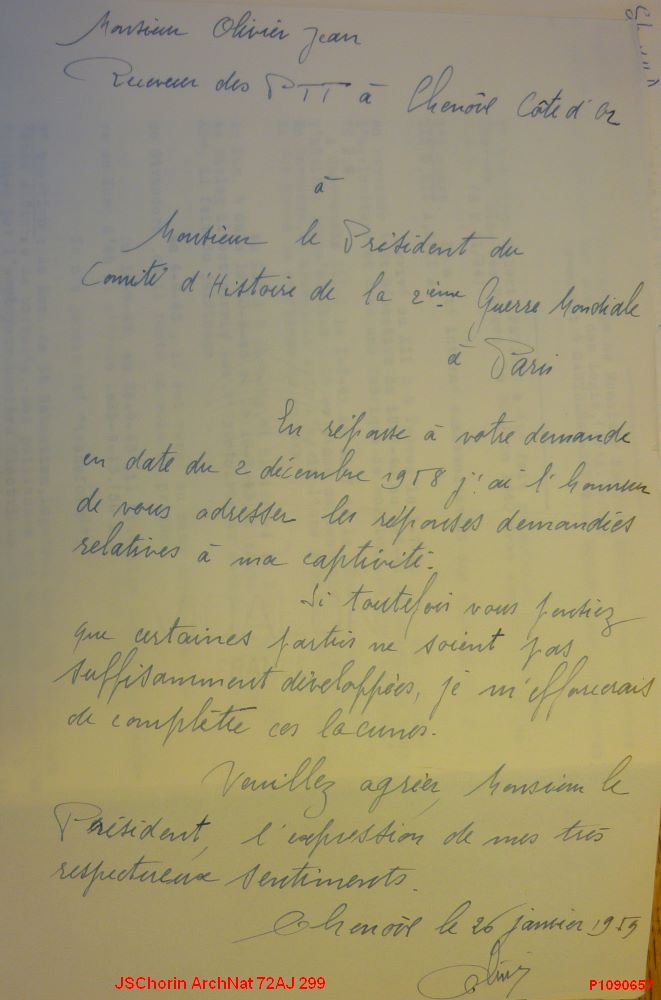 Monsieur Olivier Jean
Receveur des PTT à Chenôve Côte d'Or
à
Monsieur le Président du
Comité d'Histoire de la 2ième Guerre Mondiale
à Paris
En réponse à votre demande
en date du 2 décembre 1958 j'ai l'honneur
de vous adresser les réponses demandées
relatives à ma captivité.
Si toutefois vous pensiez
que certaines parties ne soient pas
suffisamment développées, je m'efforcerais
de complèter ces lacunes.
Veuillez agréer, Monsieur le
Président, l'expression de mes très
respectueux sentiments.
Chenôve le 26 janvier 1959
JSChorin ArchNat 72AJ 299
P1090657